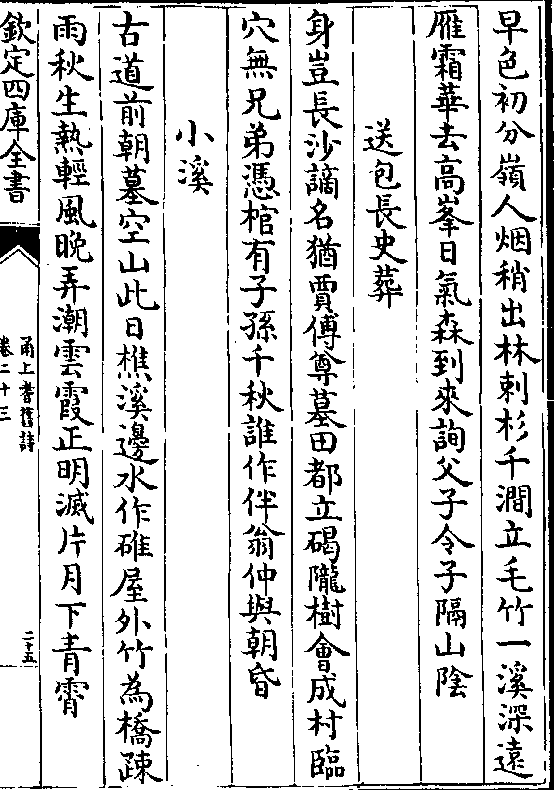 早色初分嶺人烟稍出林刺杉千澗立毛竹一溪深遠
雁霜華去高峯日氣森到來詢父子令子隔山陰
送包長史葬
身豈長沙謫名猶賈傅尊墓田都立碣隴樹會成村臨
穴無兄弟憑棺有子孫千秋誰作伴翁仲與朝昏
小溪
古道前朝墓空山此日樵溪邊水作碓屋外竹為橋疎
雨秋生熱輕風晚弄潮雲霞正明滅片月下青霄
欽定四庫全書
甬上耆舊詩
卷二十三
二十五